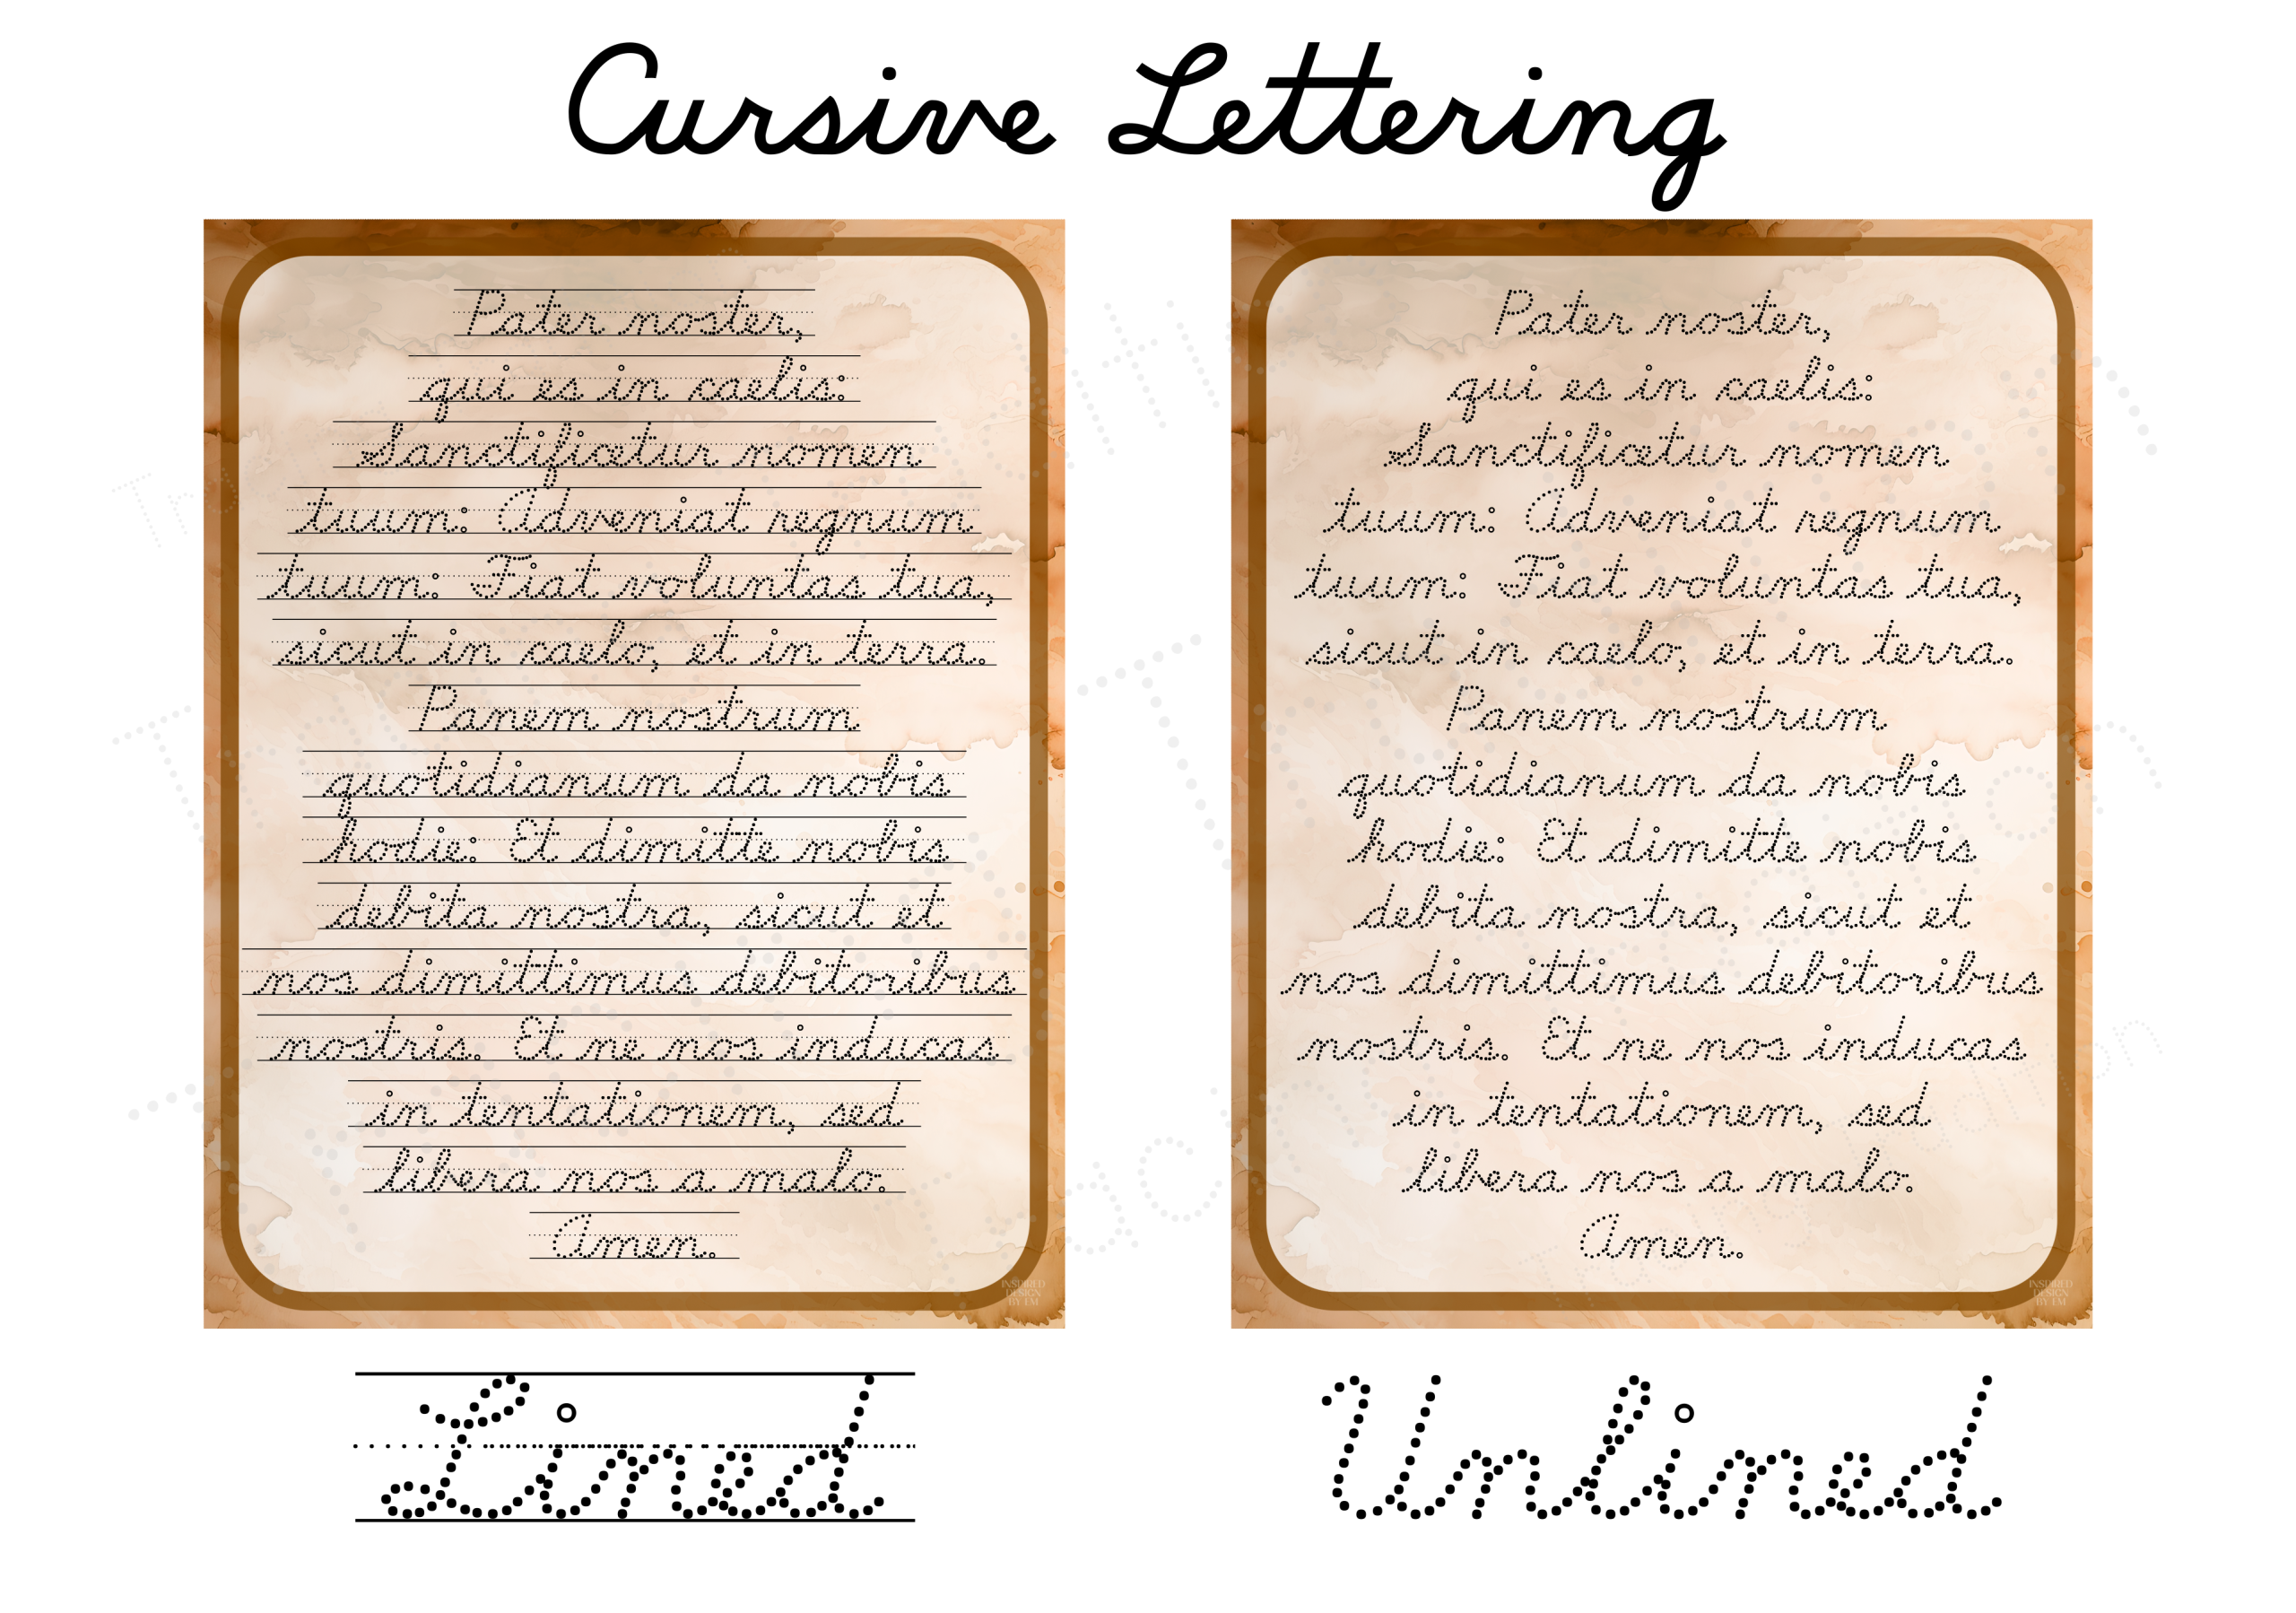 Cursive Lettering
Pater noster,
qui es in caelis:
Sanctificetur nomen
tuum: Adveniat regnum
tuum: Fiat voluntas tua,
sicut in caelo, et in terra.
Panem nostrum
quotidianum da nobis
hodie: Et dimitte nobis
debita nostra, sicut et
nos dimittimus debitoribus
nostris. Et ne nos inducas
in tentationem, sed
libera nos a malo.
Amen.
INSPIRED
DESIGN
BY EM
Lined
Pater noster,
qui es in caelis:
Sanctificetur nomen
tuum: Adveniat regnum
tuum: Fiat voluntas tua,
sicut in caelo, et in terra.
Panem nostrum
quotidianum da nobis
hodie: Et dimitte nobis
debita nostra, sicut et
nos dimittimus debitoribus
nostris. Et ne nos inducas
in tentationem, sed
libera nos a malo.
Amen.
INSPIRED
DESIGN
BY EM
Unlined